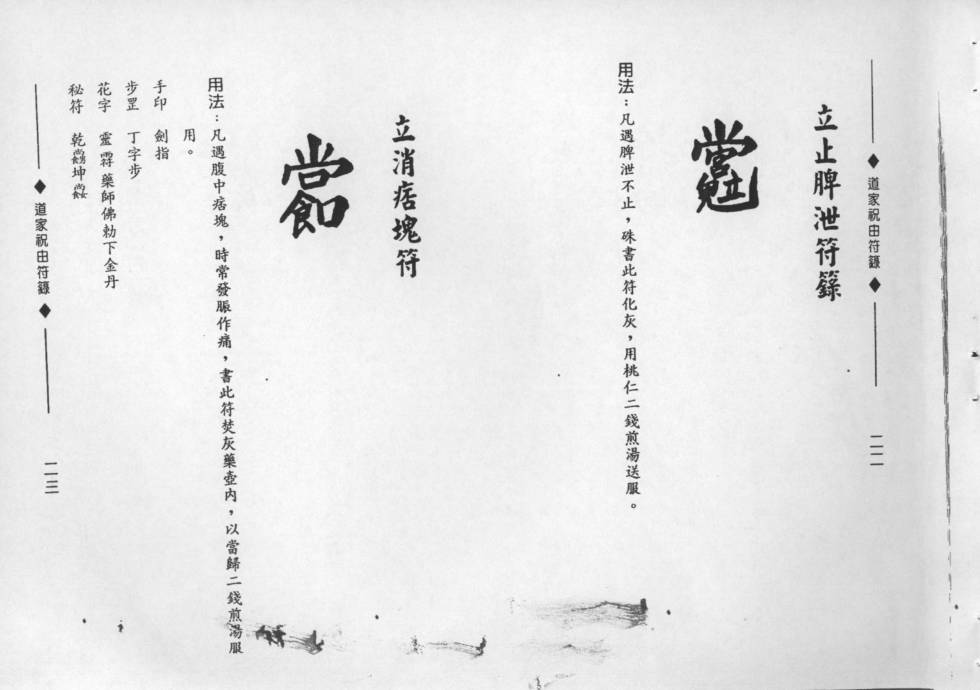 ◆ 道家祝由符籙 ◆ 二二
立止脾泄符籙
用法：凡遇脾泄不止，硃書此符化灰，用桃仁二錢煎湯送服。
立消痞塊符
用法：凡遇腹中痞塊，時常發脹作痛，書此符焚灰藥壺內，以當歸二錢煎湯服
用。
手印 劍指
步罡 丁字步
花字 靈霛藥師佛勅下金丹
秘符 乾坤
◆ 道家祝由符籙 ◆ 二三